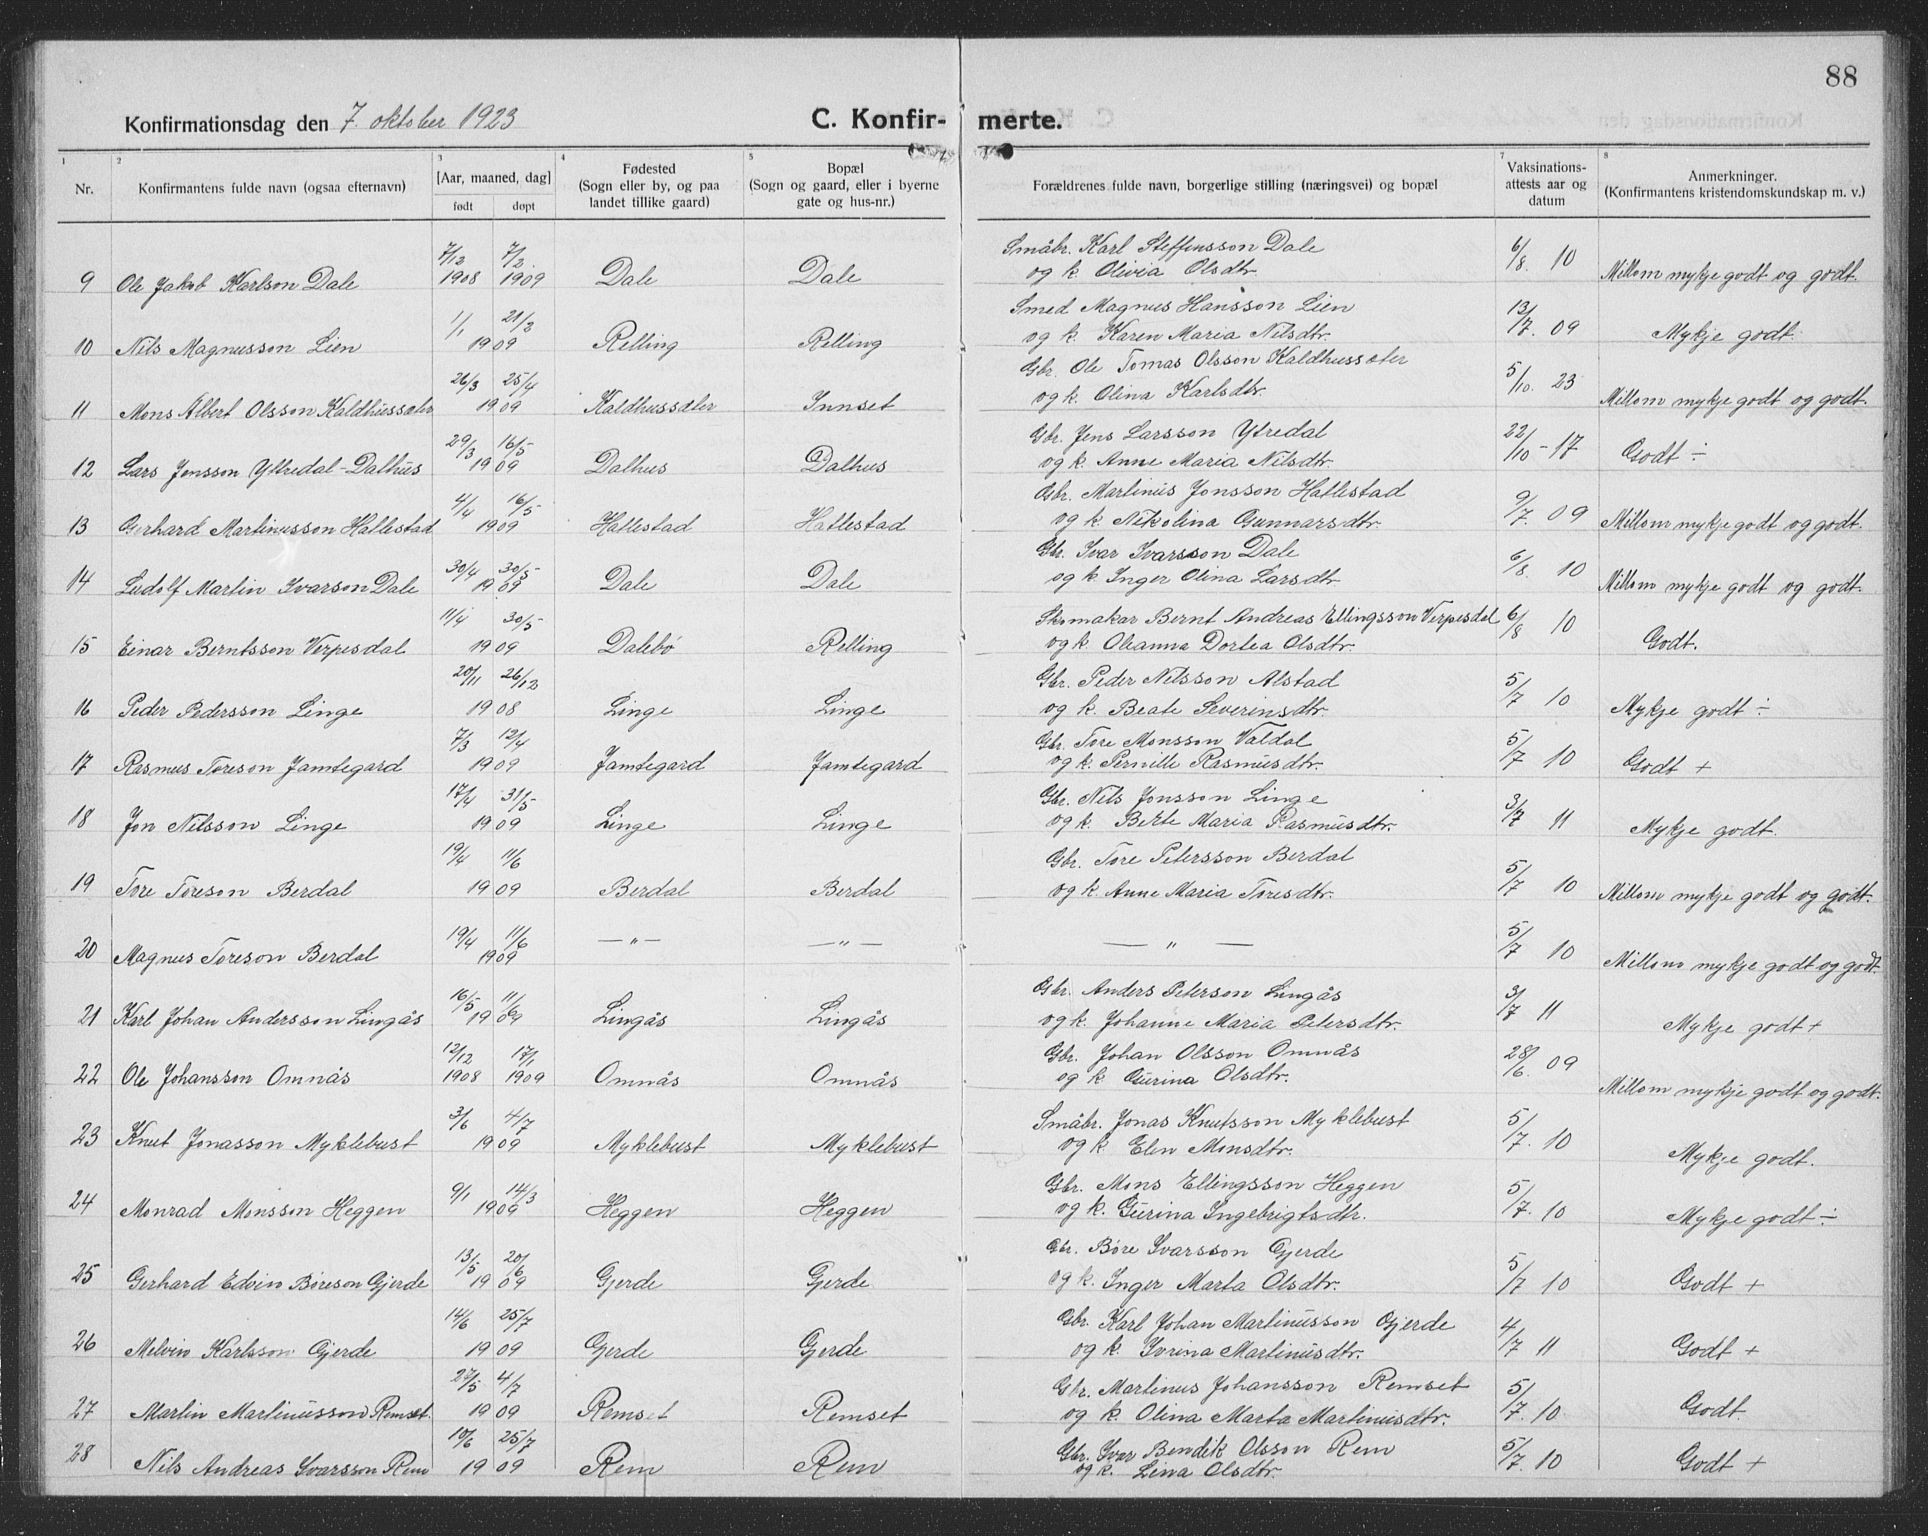 88
Konfirmationsdag den 7. oktober 1923 C. Konfir- merte.
1 2 3 4 5 7 8
Nr. Konfirmantens fulde navn (ogsaa efternavn) [Aar, maaned, dag] født døpt Fødested (Sogn eller by, og paa landet tillike gaard) Bopæl (Sogn og gaard, eller i byerne gate og hus-nr.) Forældrenes fulde navn, borgerlige stilling (næringsvei) og bopæl Vaksinations-attests aar og datum Anmerkninger. (Konfirmantens kristendomskundskap m. v.)
7/12 7/2 Småbr. Karl Steffensson Dale 6/8. 10
9 Ole Jakob Karlson Dale 1908 1909 Dale Dale og k. Olivia Olsdtr. Millom mykje godt og godt.
1/1 21/2 Smed Magnus Hansson Lien 13/7. 09
10 Nils Magnusson Lien 1909 Relling Relling og k. Karen Maria Nilsdtr. Mykje godt.
26/3 25/4 Gbr. Ole Tomas Olsson Kaldhussæter 5/10. 23
11 Mons Albert Olsson Kaldhussæter 1909 Kaldhussæter Innset og k. Olina Karlsdtr. Millom mykje godt og godt.
29/3 16/5 Gbr. Jens Larsson Ytredal 22/10 - 17
12 Lars Jensson Ytredal-Dalhus 1909 Dalhus Dalhus og k. Anne Maria Nilsdtr. Godt ÷
4/4 16/5 Gbr. Martinus Jonsson Hallestad 9/7. 09
13 Gerhard Martinusson Hallestad 1909 Hallestad Hallestad og k. Nikolina Gunnarsdtr. Millom mykje godt og godt.
30/4 30/5 Gbr. Ivar Ivarsson Dale 6/8 10
14 Ludolf Martin Ivarson Dale 1909 Dale Dale og k. Inger Olina Larsdtr. Millom mykje godt og godt.
11/4 30/5 Skomakar Bernt Andreas Ellingsson Verpesdal 6/8 10
15 Einar Berntsson Verpesdal 1909 Dalebø Relling og k. Oleanna Dortea Olsdtr. Godt.
20/11 26/12 Gbr. Peder Nilsson Alstad 5/7 10
16 Peder Pedersson Linge 1908 Linge Linge og k. Beate Severinsdtr. Mykje godt ÷
7/3 12/4 Gbr. Tore Monsson Valdal 5/7 10
17 Rasmus Toreson Jamtegard 1909 Jamtegard Jamtegard og k. Pernille Rasmusdtr. Godt +
17/4 31/5 Gbr. Nils Jonsson Linge 3/7 11
18 Jon Nilsson Linge 1909 Linge Linge og k. Berte Maria Rasmusdtr. Mykje godt.
19/4 11/6 Gbr. Tore Petersson Berdal 5/7 10
19 Tore Toreson Berdal 1909 Berdal Berdal og k. Anne Maria Toresdtr. Millom mykje godt og godt.
19/4 11/6 — " — — " — — " — 5/7 10
20 Magnus Toreson Berdal 1909 Millom mykje godt og godt.
16/5 11/6 Gbr. Anders Peterson Lingås 3/7 11
21 Karl Johan Andersson Lingås 1909 Lingås Lingås og k. Johanne Maria Petersdtr. Mykje godt +
12/12 17/1 Gbr. Johan Olsson Omnås 28/6. 09
22 Ole Johansson Omnås 1908 1909 Omnås Omnås og k. Gurina Olsdtr. Millom mykje godt og godt.
3/6 4/7 Småbr. Jonas Knutsson Myklebust 5/7. 10
23 Knut Jonasson Myklebust 1909 Myklebust Myklebust og k. Elen Monsdtr. Mykje godt.
9/1 14/3 Gbr. Mons Ellingsson Heggen 5/7. 10
24 Monrad Monsson Heggen 1909 Heggen Heggen og k. Gurina Ingebrigtsdtr. Mykje godt ÷
13/5 20/6 Gbr. Børe Ivarsson Gjerde 5/7 10
25 Gerhard Edvin Børeson Gjerde 1909 Gjerde Gjerde og k. Inger Marta Olsdtr. Godt +
14/6 25/7 Gbr. Karl Johan Martinusson Gjerde 4/7 11
26 Melvin Karlsson Gjerde 1909 Gjerde Gjerde og k. Ivrina Martinusdtr. Godt +
4/7 Gbr. Martinus Johansson Remset 5/7. 10
27 Martin Martinusson Remset. 1909 Remset Remset og k. Olina Marta Martinusdtr. Godt.
10/6 25/7 Gbr. Ivar Bendik Olsson Rem 5/7. 10
28 Nils Andreas Ivarsson Rem 1909 Rem Rem og k. Lina Olsdtr. Godt +